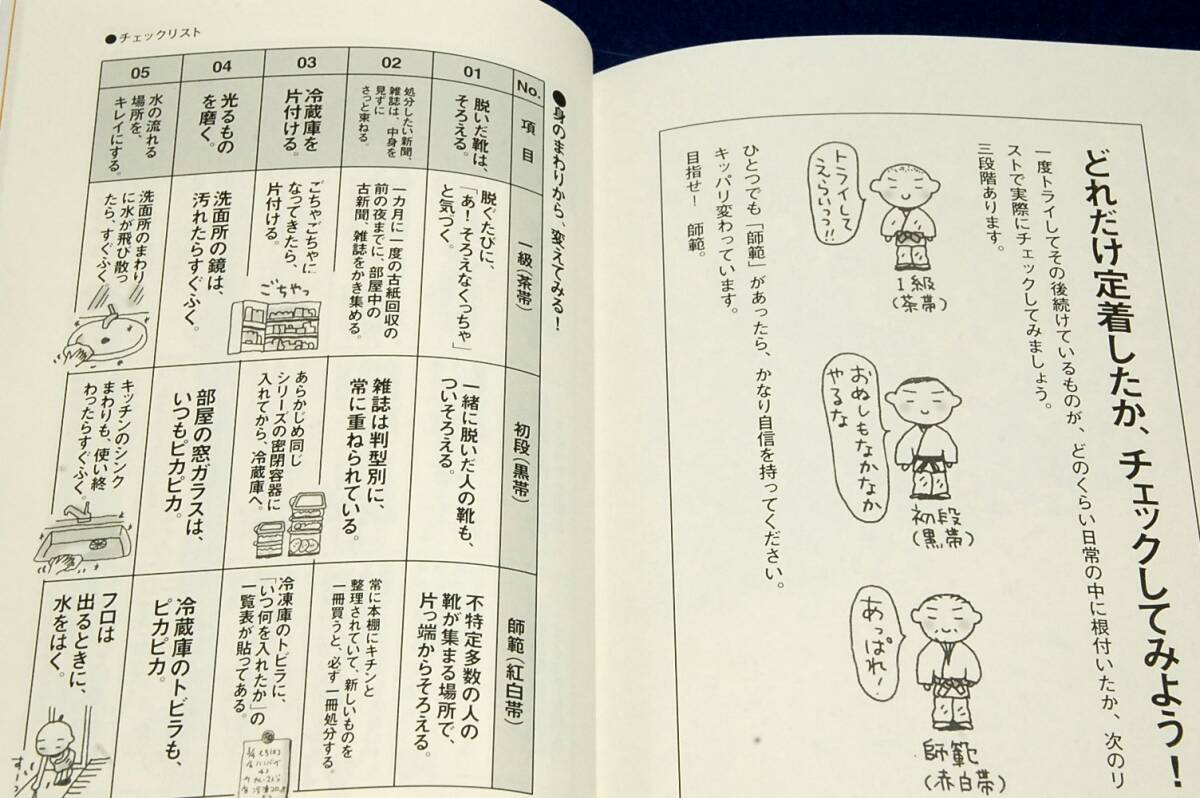 どれだけ定着したか、チェックしてみよう！
一度トライしてその後続けているものが、どのくらい日常の中に根付いたか、次のリ
ストで実際にチェックしてみましょう。
三段階あります。
トライして
えらいっ!!
1級
(茶帯)
おぬしもなかなか
やるな
初段
(黒帯)
あっぱれ!
師範
(赤白帯)
ひとつでも「師範」があったら、かなり自信を持ってください。
キッパリ変わっています。
目指せ！ 師範。
●チェックリスト
●身のまわりから、変えてみる！
No.
項目
一級（茶帯）
初段（黒帯）
師範（紅白帯）
01
脱いだ靴は、
そろえる。
脱ぐたびに、
「あ！そろえなくっちゃ」
と気づく。
一緒に脱いだ人の靴も、
ついそろえる。
不特定多数の人の
靴が集まる場所で、
片っ端からそろえる。
02
処分したい新聞、
雑誌は、中身を
見ずに
さっと束ねる。
一カ月に一度の古紙回収の
前の夜までに、部屋中の
古新聞、雑誌をかき集める。
雑誌は判型別に、
常に重ねられている。
常に本棚にキチンと
整理されていて、新しいものを
一冊買うと、必ず一冊処分する。
03
冷蔵庫を
片付ける。
ごちゃごちゃに
なってきたら、
片付ける。
ごちゃっ
あらかじめ同じ
シリーズの密閉容器に
入れてから、冷蔵庫へ。
冷凍庫のトビラに、
「いつ何を入れたか」の
一覧表が貼ってある。
04
光るもの
を磨く。
洗面所の鏡は、
汚れたらすぐふく。
部屋の窓ガラスは、
いつもピカピカ。
冷蔵庫のトビラも、
ピカピカ。
05
水の流れる
場所を、
キレイにする。
洗面所のまわり
に水が飛び散っ
たら、すぐふく
キッチンのシンク
まわりも、使い終
わったらすぐふく。
フロは
出るときに、
水をはく。
すいーっ